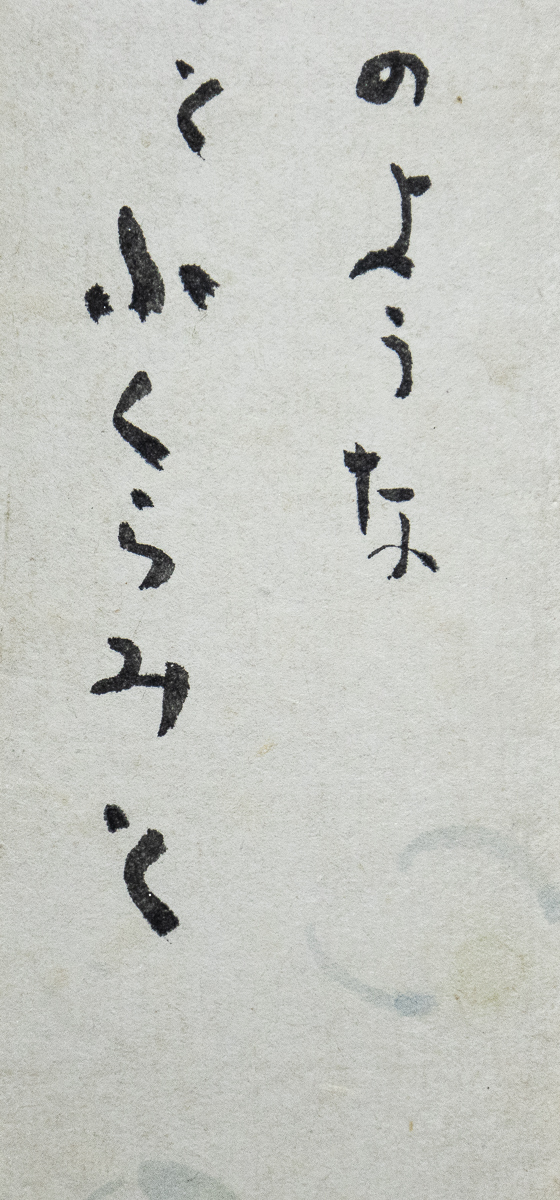 のような
とふくらみと